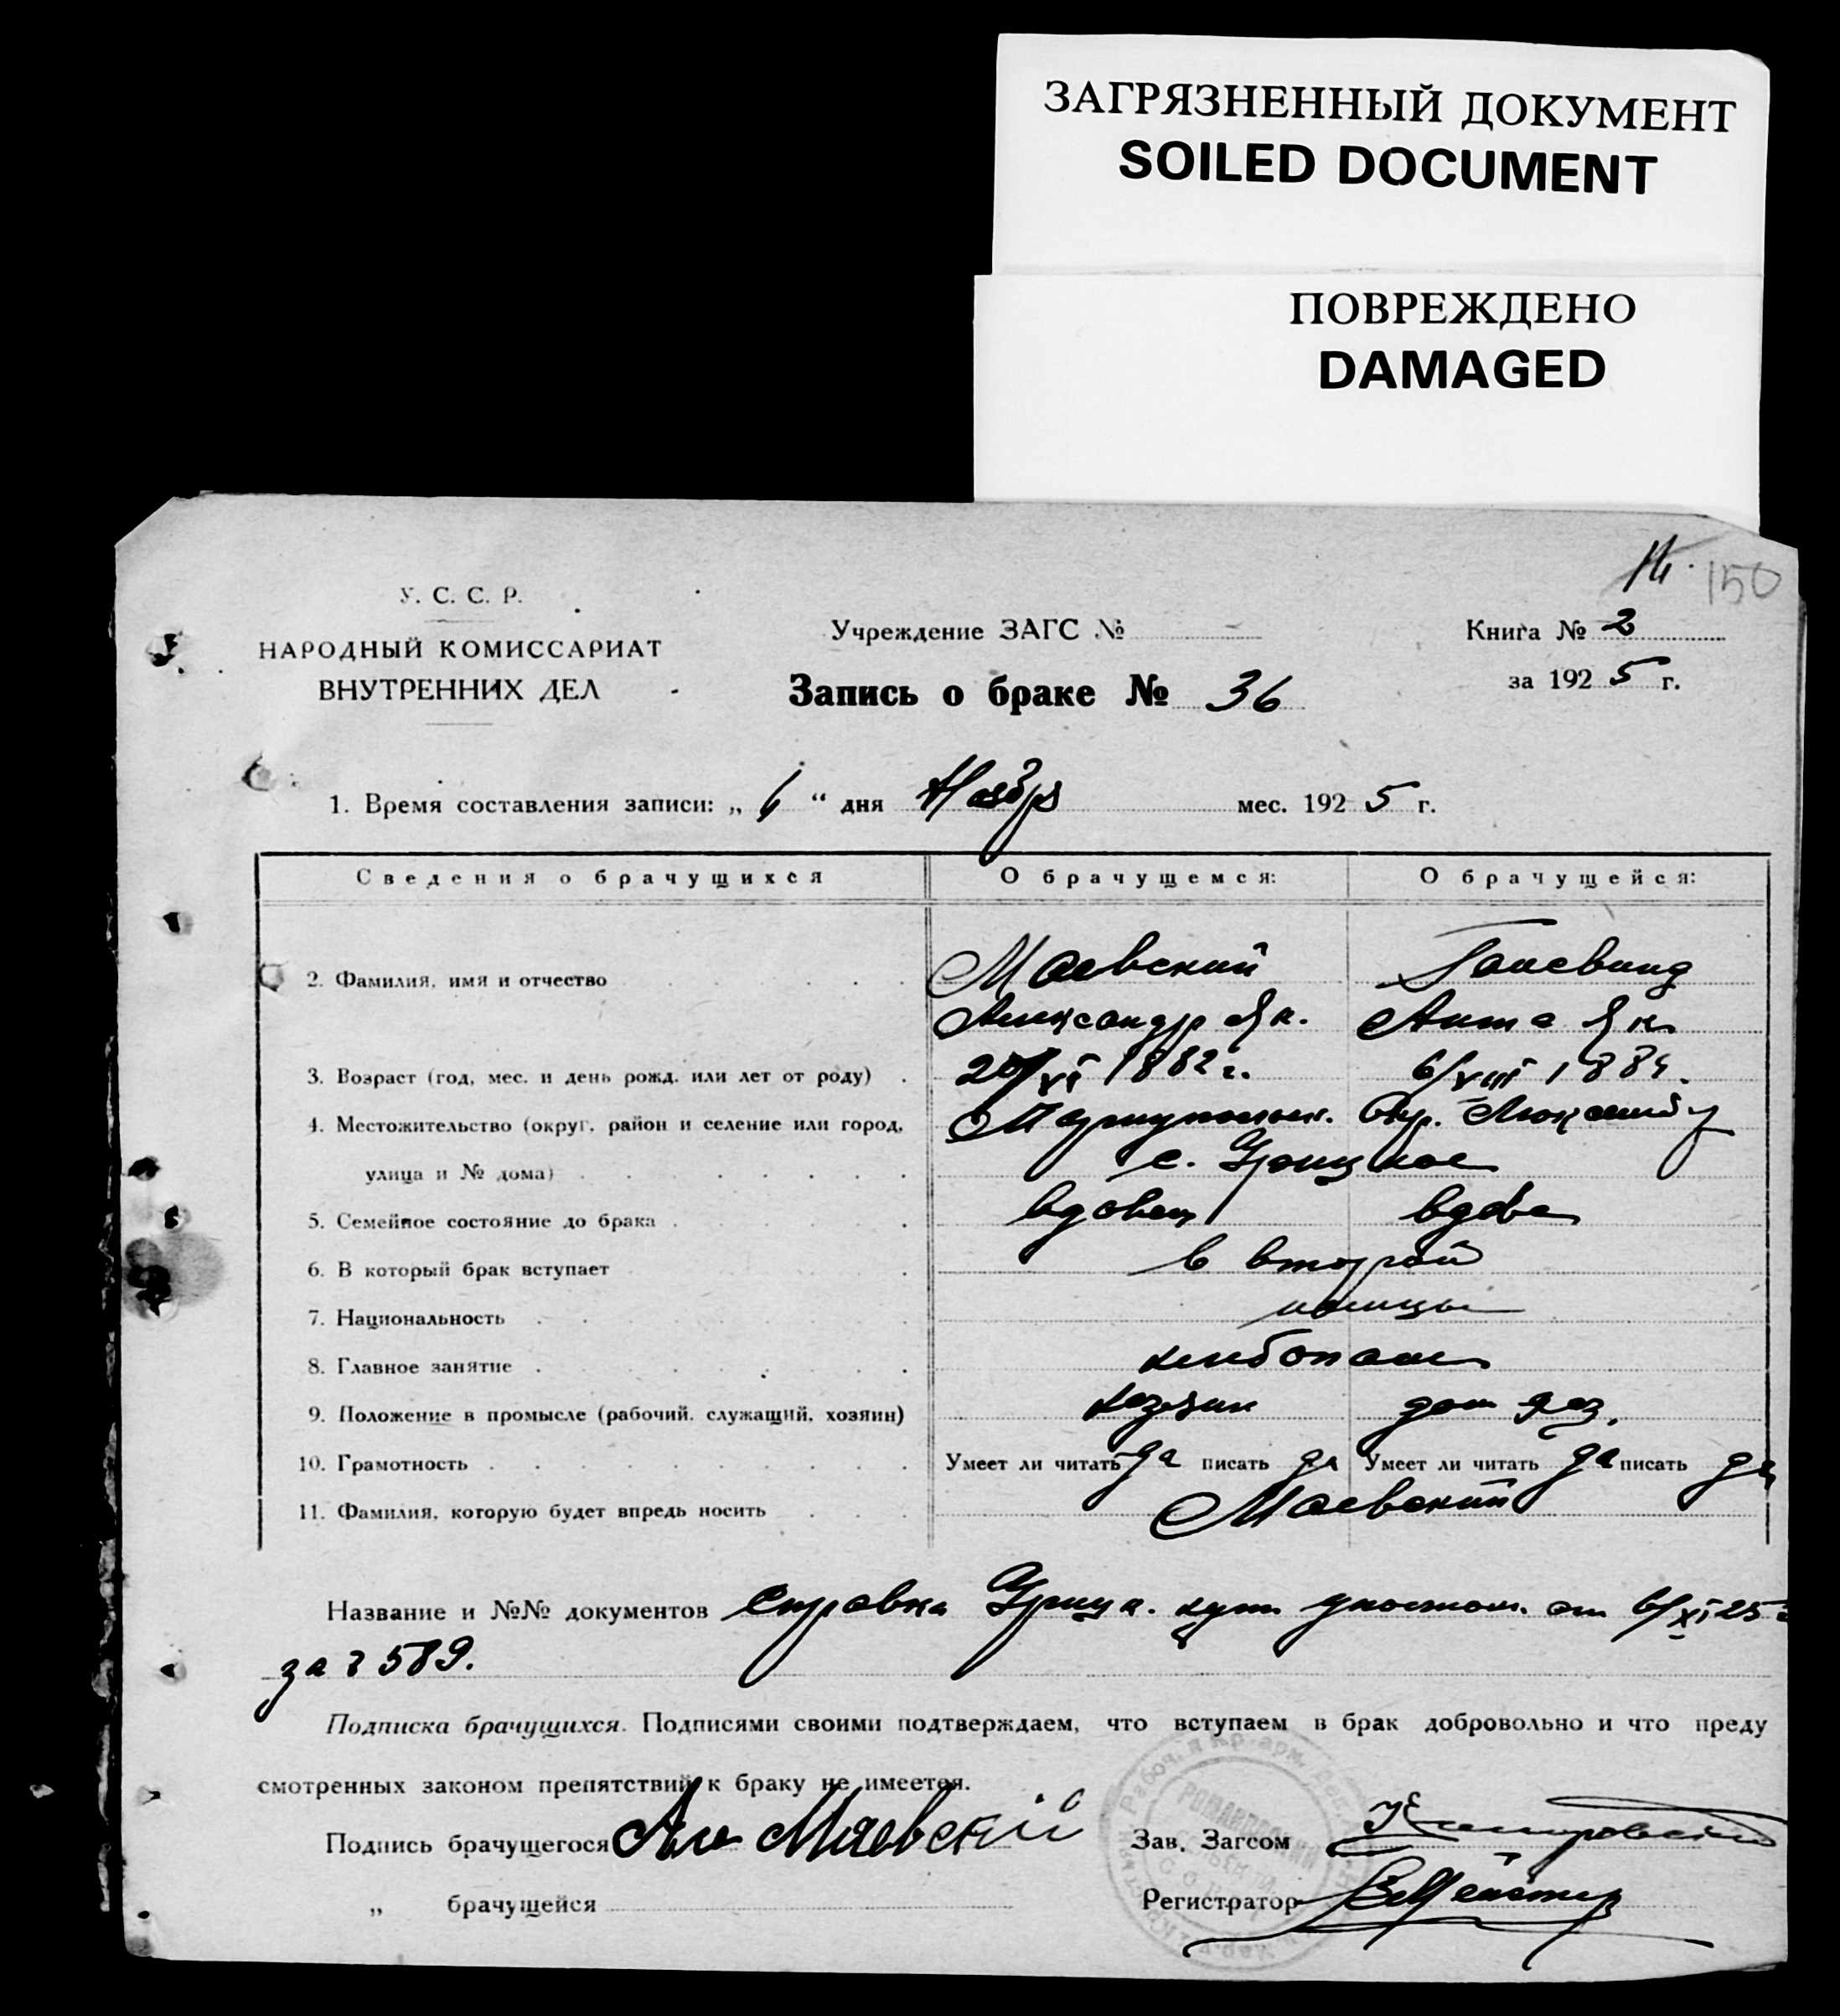 ЗАГРЯЗНЕННЫЙ ДОКУМЕНТ
SOILED DOCUMENT
ПОВРЕЖДЕНО
DAMAGED
150
У. С. С. Р.
НАРОДНЫЙ КОМИССАРИАТ
ВНУТРЕННИХ ДЕЛ
Учреждение ЗАГС №
Запись о браке № 36
Книга № 2
за 1925 г.
1. Время составления записи: „ 6 “ дня Ноября мес. 1925 г.
Сведения о брачущихся О брачущемся: О брачущейся:
2. Фамилия, имя и отчество Маевский
Александр Як. Як.
3. Возраст (год, мес. и день рожд. или лет от роду) 20/VI 1882 г. 6/VIII 188
4. Местожительство (округ, район и селение или город, Мариупольск. Окр.
улица и № дома) с. Урицкое
5. Семейное состояние до брака вдовец вдова
6. В который брак вступает в второй
7. Национальность немцы
8. Главное занятие хлебопаш
9. Положение в промысле (рабочий, служащий, хозяин) хозяин дом хоз.
10. Грамотность Умеет ли читать да писать да Умеет ли читать да писать да
11. Фамилия, которую будет впредь носить Маевский
Название и №№ документов справка от 6/XI 25 г
за № 589.
Подписка брачущихся. Подписями своими подтверждаем, что вступаем в брак добровольно и что преду
смотренных законом препятствий к браку не имеется.
Подпись брачущегося Ал Маевскій Зав. Загсом
„ брачущейся Регистратор